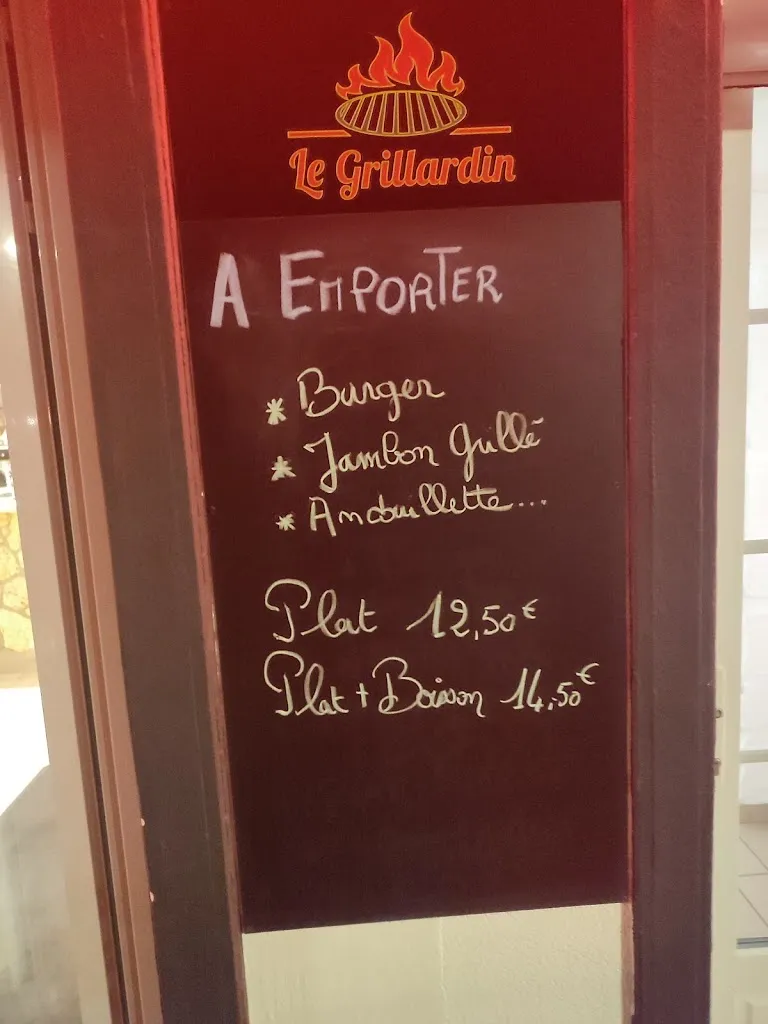 Le Grillardin
A EMPORTER
* Burger
* Jambon Grillé
* Andouillette...
Plat 12,50€
Plat + Boisson 14,50€